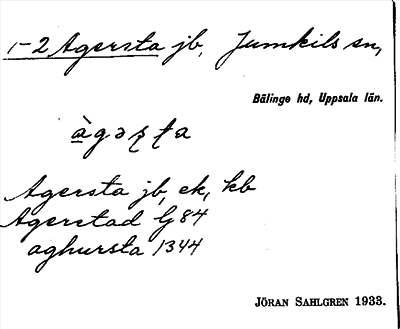 1-2 Agersta jb, Jumkils sn,
Bälinge hd, Uppsala län.
àgəʂʈa
Agersta jb, ek, kb
Agerstad G84
aghursta 1344
JÖRAN SAHLGREN 1933.